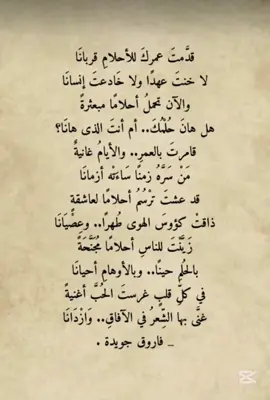 قدَّمتَ عمركَ للأحلامِ قربانَا
لا خنتَ عهدًا ولا خَادعتَ إنسانَا
والآن تحملُ أحلامًا مبعثرةً
هل هانَ حُلْمُكَ.. أم أنتَ الذى هانَا؟
قامرتَ بالعمرِ.. والأيامُ غانيةٌ
مَنْ سَرَّه زمنًا سَاءَتْه أزمانَا
قد عشتَ ترْسُمُ أحلامًا لعاشقةٍ
ذاقتْ كؤوسَ الهوى طُهرًا.. وعِصْيَانَا
زَيَّنْتَ للناسِ أحلامًا مُجَنَّحَةً
بالحُلمِ حينًا.. وبالأوهامِ أحيانَا
في كلِّ قلبٍ غرستَ الحُبَّ أغنيةً
غنَّى بها الشِّعرُ في الآفاقِ.. وَازْدَانَا
_ فاروق جويدة .